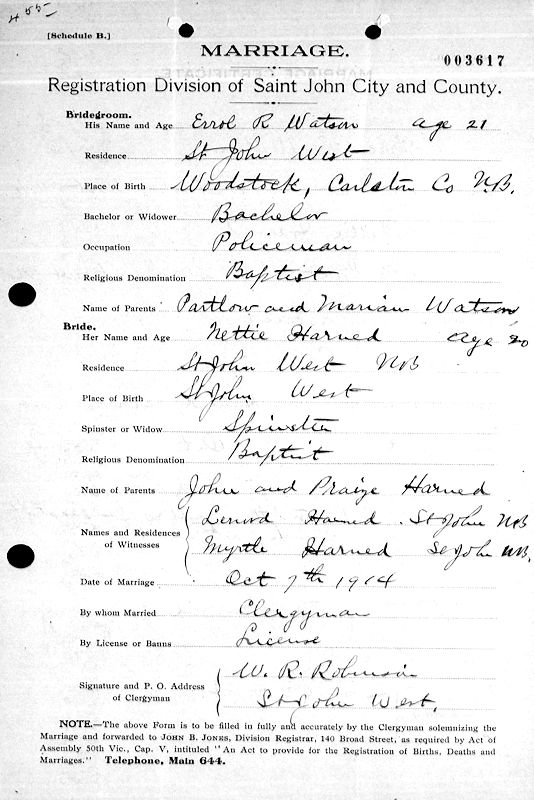 455
[Schedule B.]
MARRIAGE.
003617
Registration Division of Saint John City and County.
Bridegroom.
His Name and Age Errol R Watson age 21
Residence St John West
Place of Birth Woodstock, Carleton Co N.B.
Bachelor or Widower Bachelor
Occupation Policeman
Religious Denomination Baptist
Name of Parents Partlow and Marian Watson
Bride.
Her Name and Age Nettie Harned age 20
Residence St John West NB
Place of Birth St John West
Spinster or Widow Spinster
Religious Denomination Baptist
Name of Parents John and Harned
Names and Residences of Witnesses Lenord Harned . St John NB
Myrtle Harned St John NB.
Date of Marriage Oct 7th 1914
By whom Married Clergyman
By License or Banns License
Signature and P. O. Address of Clergyman W. R. Robinson
St John West.
NOTE.—The above Form is to be filled in fully and accurately by the Clergyman solemnizing the
Marriage and forwarded to JOHN B. JONES, Division Registrar, 140 Broad Street, as required by Act of
Assembly 50th Vic., Cap. V, intituled "An Act to provide for the Registration of Births, Deaths and
Marriages." Telephone, Main 644.